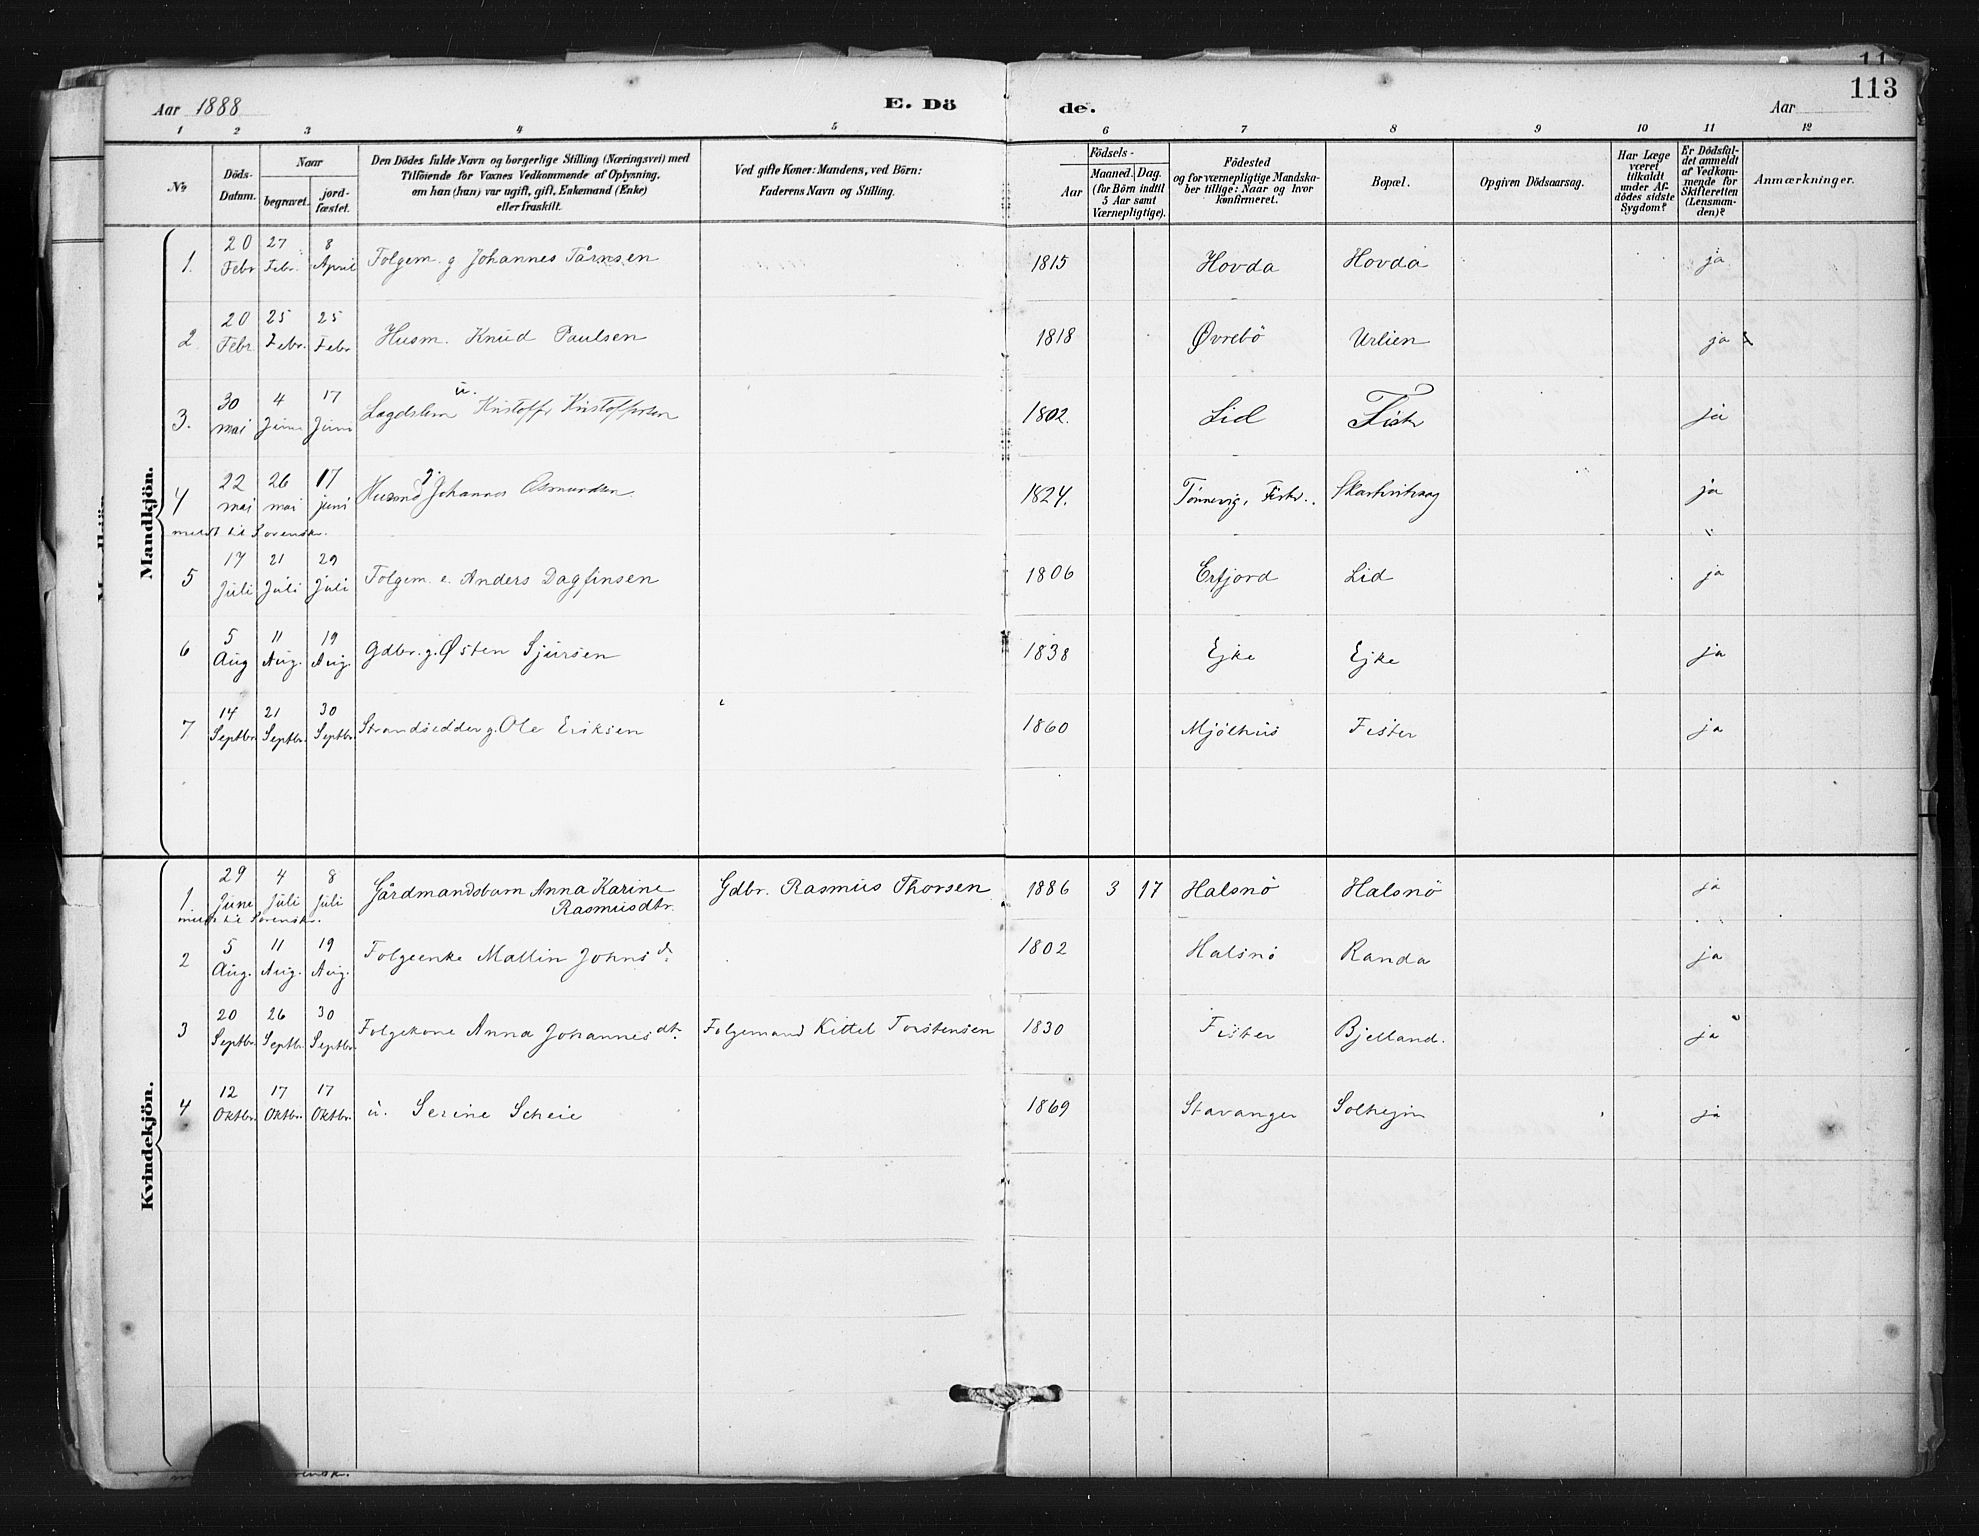 117
113
Aar 1888 E. Dö de. Aar
1 2 3 4 5 6 7 8 9 10 11 12
No
Döds-Datum.
Naar
begravet.
jord-fæstet.
Den Dödes fulde Navn og borgerlige Stilling (Næringsvei) med
Tilføiende for Voxnes Vedkommende af Oplysning,
om han (hun) var ugift, gift, Enkemand (Enke)
eller fraskilt.
Ved gifte Koner: Mandens, ved Börn:
Faderens Navn og Stilling.
Födsels-
Aar
Maaned. Dag.
(for Börn indtil
5 Aar samt
Værnepligtige).
Födested
og for værnepligtige Mandska-
ber tillige: Naar og hvor
konfirmeret.
Bopæl.
Opgiven Dödsaarsag.
Har Læge
været
tilkaldt
under Af-
dödes sidste
Sygdom?
Er Dödsfal-
det anmeldt
af Vedkom-
mende for
Skifteretten
(Lensman-
den)?
Anmærkninger.
Mandkjön.
1. 20 Febr 27 Febr. 8 April Folgem. g Johannes Tårnsen 1815 Hovda Hovda ja
2. 20 Febr. 25 Febr. 25 Febr Husm. Knud Paulsen 1818 Øvrebö Urlien ja
3. 30 mai 4 Juni 17 Juni Lægdslem u. Kristoffr Kristoffersen 1802. Lid Fistr ja
4 22 mai 26 mai 17 juni Husmd g. Johannes Osmundsen 1824. Tønnevig, Fistr. ja
5 17 Juli 21 Juli 29 Juli Folgem. e. Anders Dagfinsen 1806 Erfjord Lid ja
6 5 Aug 11 Aug. 19 Aug. Gdbr. g. Østen Sjursen 1838 Ejke Ejke ja
7 14 Septbr. 21 Septbr. 30 Septbr. Strandsidder g. Ole Eriksen 1860 Mjölhus Fister ja
Kvindekjön.
1 29 June 4 Juli 8 Juli Gårdmandsbarn Anna Karine Gdbr. Rasmus Thorsen 1886 3 17 Halsnö Halsnö ja
Rasmusdtr.
2 5 Aug. 11 Aug. 19 Aug. Folgeenke Mallin Johns d. 1802 Halsnö Randa ja
3 20 Septbr. 26 Septbr. 30 Septbr. Folgekone Anna Johannesdtr. Folgemand Kittel Torstensen 1830 Fister Bjelland. ja
4 12 Oktbr. 17 Oktbr. 17 Oktbr. u. Serine Scheie 1869 Stavanger Solhejm ja